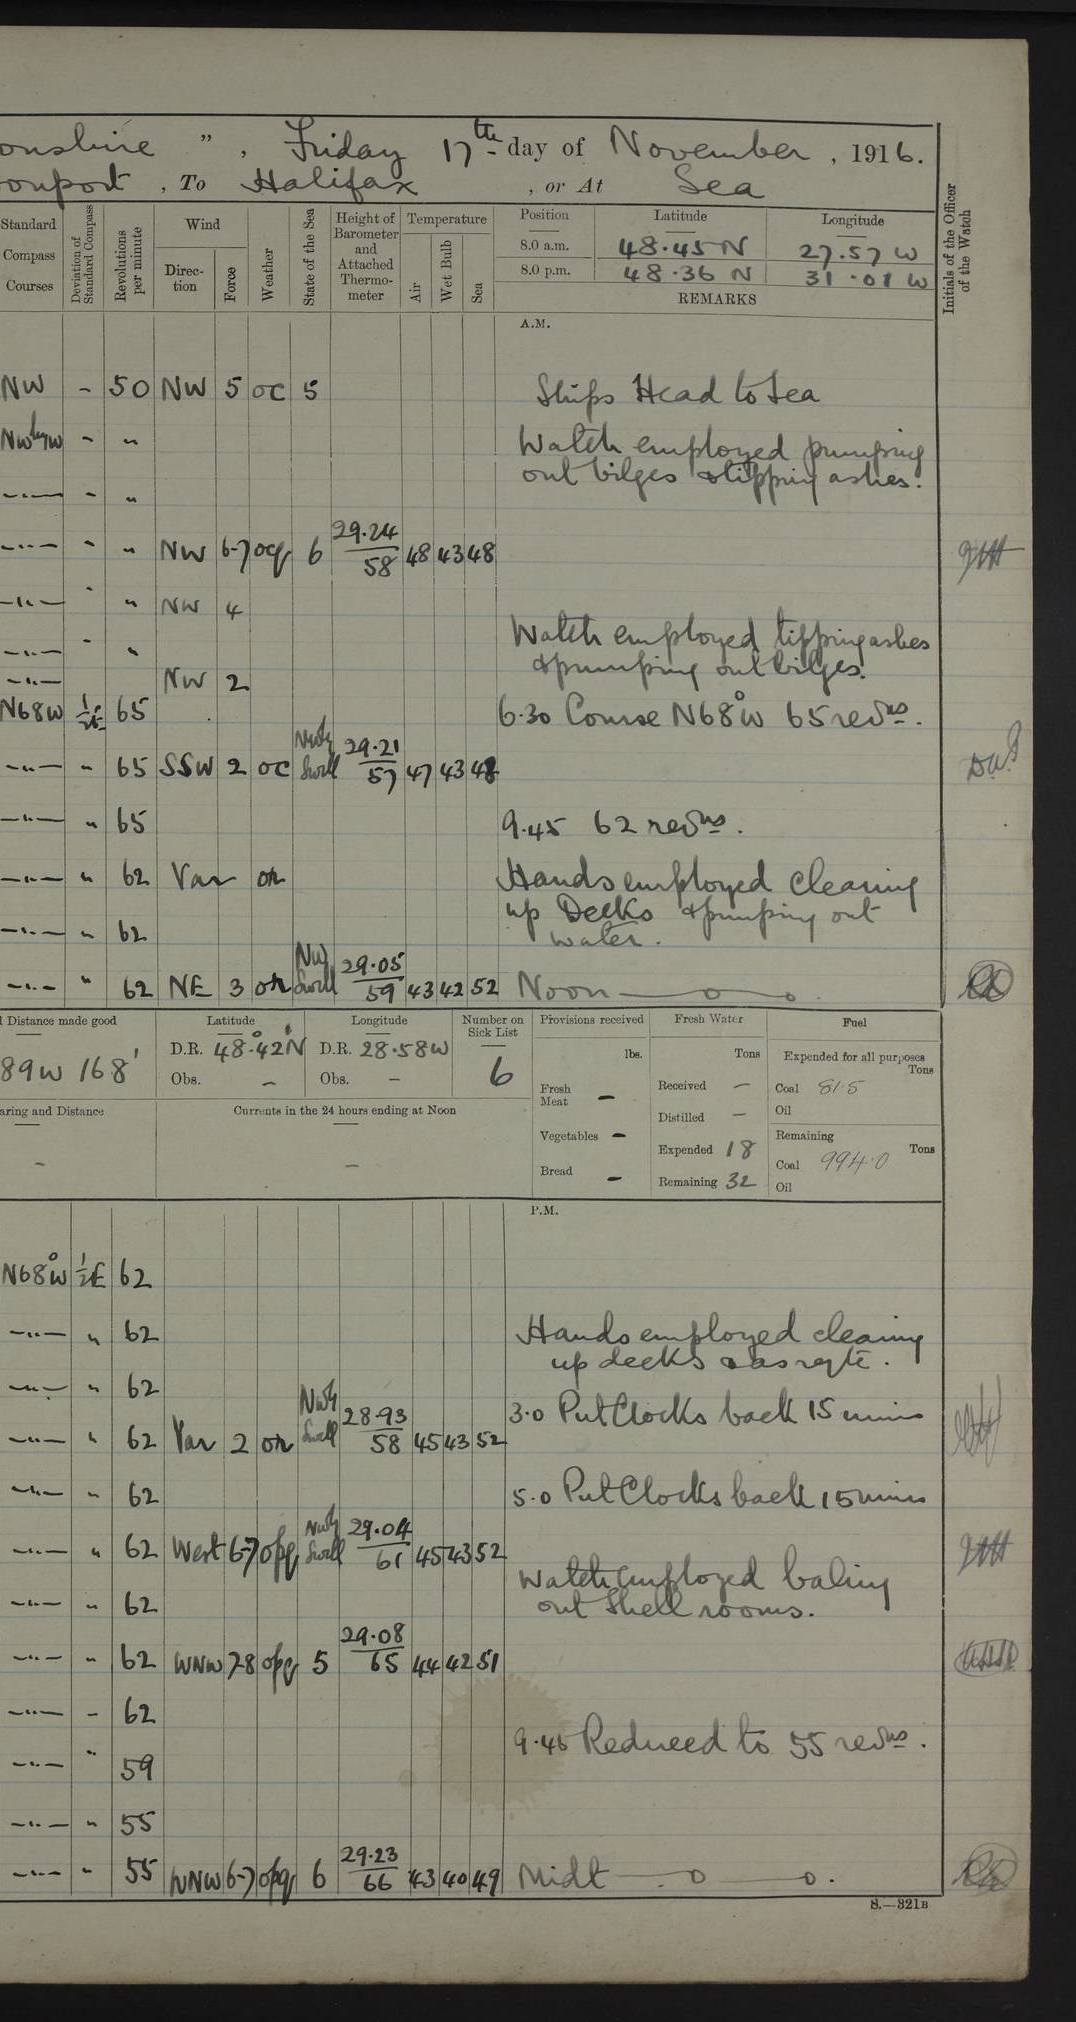 onshire ", Friday 17th day of November, 1916.
onport, To Halifax, or At Sea
Standard Compass Courses
Deviation of Standard Compass
Revolutions per minute
Wind
Direction
Force
Weather
State of the Sea
Height of Barometer and Attached Thermometer
Temperature
Air
Wet Bulb
Sea
Position Latitude Longitude
8.0 a.m. 48.45 N 27.57 W
8.0 p.m. 48.36 N 31.01 W
REMARKS
Initials of the Officer of the Watch
A.M.
NW - 50 NW 5 oc 5 Ships Head to Sea
NWbyW - " Watch employed pumping
out bilges & tipping ashes.
—"— - "
—"— - " NW 6-7 ocq 6 29.24/58 48 43 48
—"— " " NW 4
Watch employed tipping ashes
—"— - "
& pumping out bilges.
—"— NW 2
N68W ½E 65 6.30 Course N68°W 65 revns.
—"— " 65 SSW 2 oc Nwly Swell 29.21/57 47 43 48
—"— " 65 9.45 62 revns.
—"— " 62 Var or Hands employed cleaning
up Decks & pumping out
—"— " 62 water.
—"— " 62 NE 3 or Nwly Swell 29.05/59 43 42 52 Noon
Distance made good
89W 168'
Latitude
D.R. 48°.42'N
Obs. -
Longitude
D.R. 28.58W
Obs. -
Number on Sick List
6
Provisions received
lbs.
Fresh Meat -
Vegetables -
Bread -
Fresh Water
Tons
Received -
Distilled -
Expended 18
Remaining 32
Fuel
Expended for all purposes
Tons
Coal 81.5
Oil
Remaining
Tons
Coal 994.0
Oil
aring and Distance
-
Currents in the 24 hours ending at Noon
-
P.M.
N68°W ½E 62
—"— " 62 Hands employed cleaning
up decks & as reqte.
—"— " 62
3.0 Put Clocks back 15 mins
—"— " 62 Var 2 or Nwly Swell 28.93/58 45 43 52
—"— " 62 5.0 Put Clocks back 15 mins
—"— " 62 West 6-7 opq Nwly Swell 29.04/61 45 43 52
Watch employed baling
—"— " 62 out Shell rooms.
—"— " 62 WNW 7-8 opq 5 29.08/65 44 42 51
—"— - 62
9.45 Reduced to 55 revns.
—"— " 59
—"— " 55
—"— " 55 WNW 6-7 opq 6 29.23/66 43 40 49 Midt
S.—321B